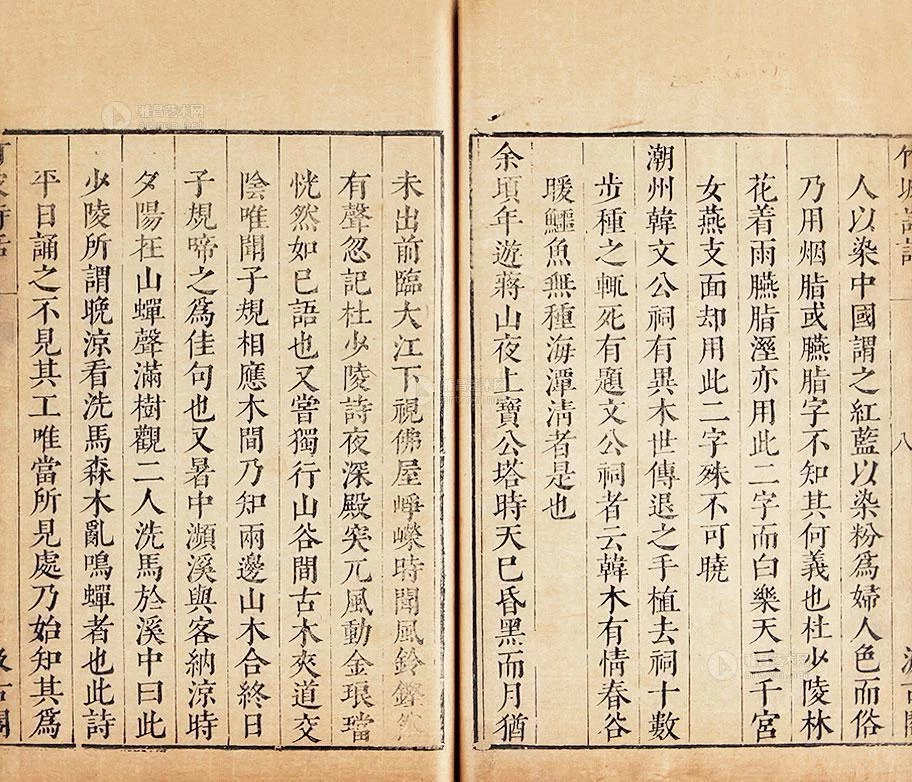 竹坡詩話
八
汲古閣
人以染中國謂之紅藍以染粉爲婦人色而俗
乃用烟脂或臙脂字不知其何義也杜少陵林
花着雨臙脂溼亦用此二字而白樂天三千宮
女燕支面却用此二字殊不可曉
潮州韓文公祠有異木世傳退之手植去祠十數
步種之輒死有題文公祠者云韓木有情春谷
暖鱷魚無種海潭淸者是也
余頃年遊蔣山夜上寶公塔時天已昏黑而月猶
未出前臨大江下視佛屋崢嶸時聞風鈴鏗然
有聲忽記杜少陵詩夜深殿突兀風動金琅璫
恍然如已語也又嘗獨行山谷間古木夾道交
陰唯聞子規相應木間乃知兩邊山木合終日
子規啼之爲佳句也又暑中瀕溪與客納涼時
夕陽在山蟬聲滿樹觀二人洗馬於溪中曰此
少陵所謂晚涼看洗馬森木亂鳴蟬者也此詩
平日誦之不見其工唯當所見處乃始知其爲
竹坡詩話
汲古閣
雅昌艺术网